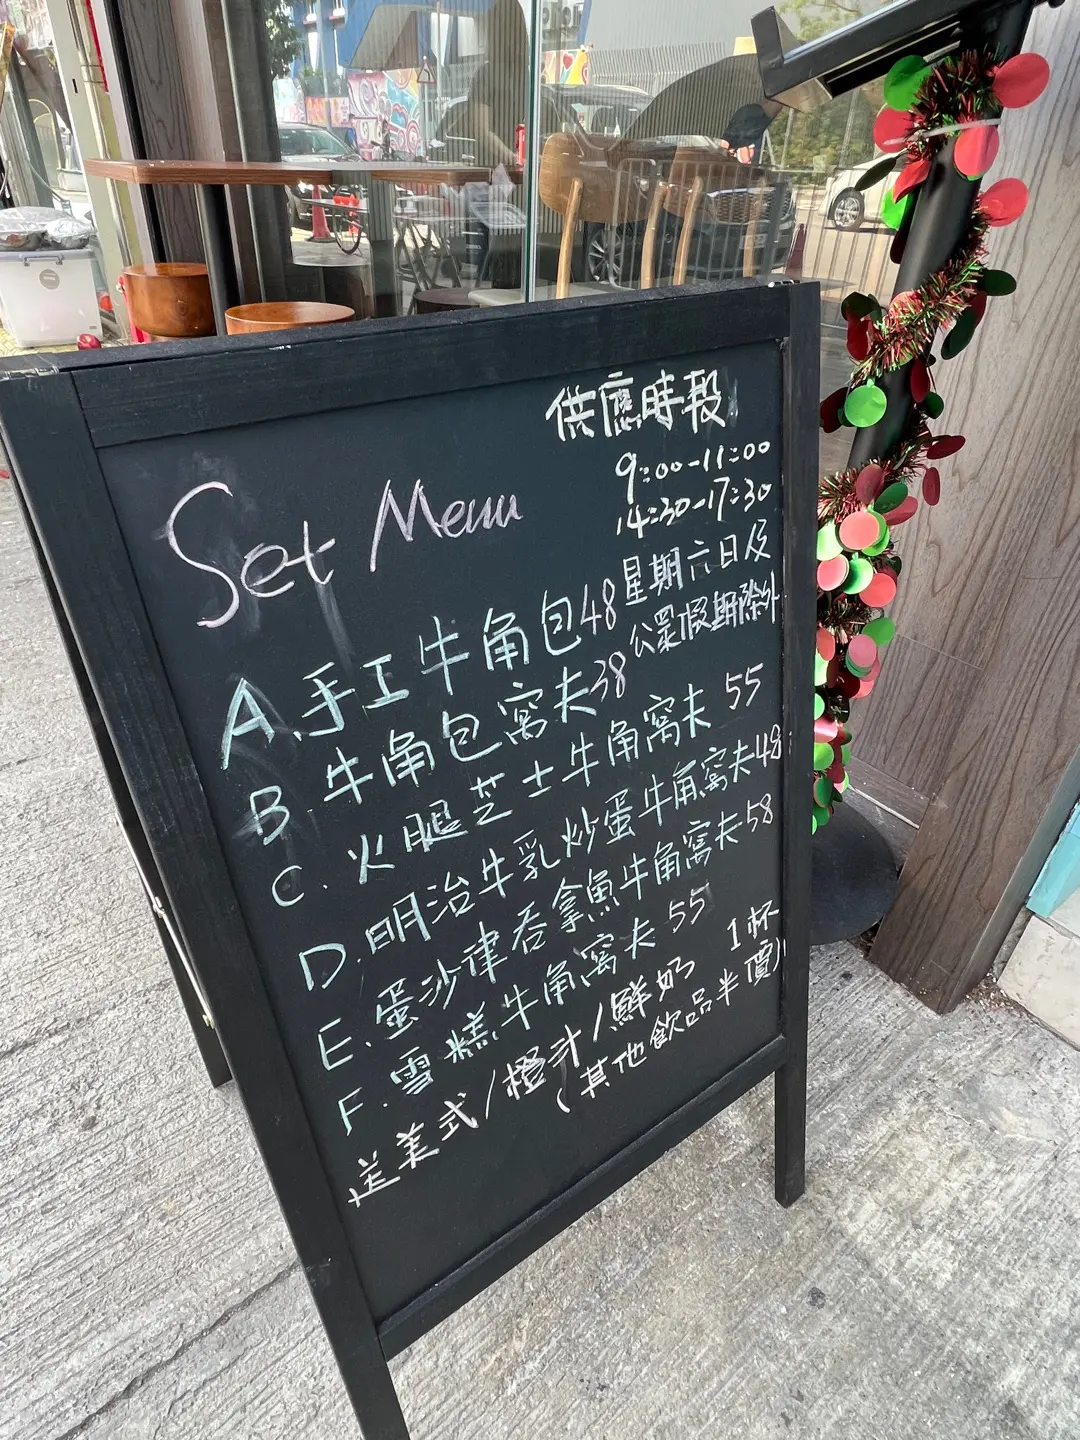 供應時段
9:00-11:00
14:30-17:30
星期六日及
公眾假期除外
Set Menu
A.手工牛角包48
B.牛角包窩夫38
C.火腿芝士牛角窩夫 55
D.明治牛乳炒蛋牛角窩夫48
E.蛋沙律吞拿魚牛角窩夫58
F.雪糕牛角窩夫 55
送美式/橙汁/鮮奶 1杯
(其他飲品半價)